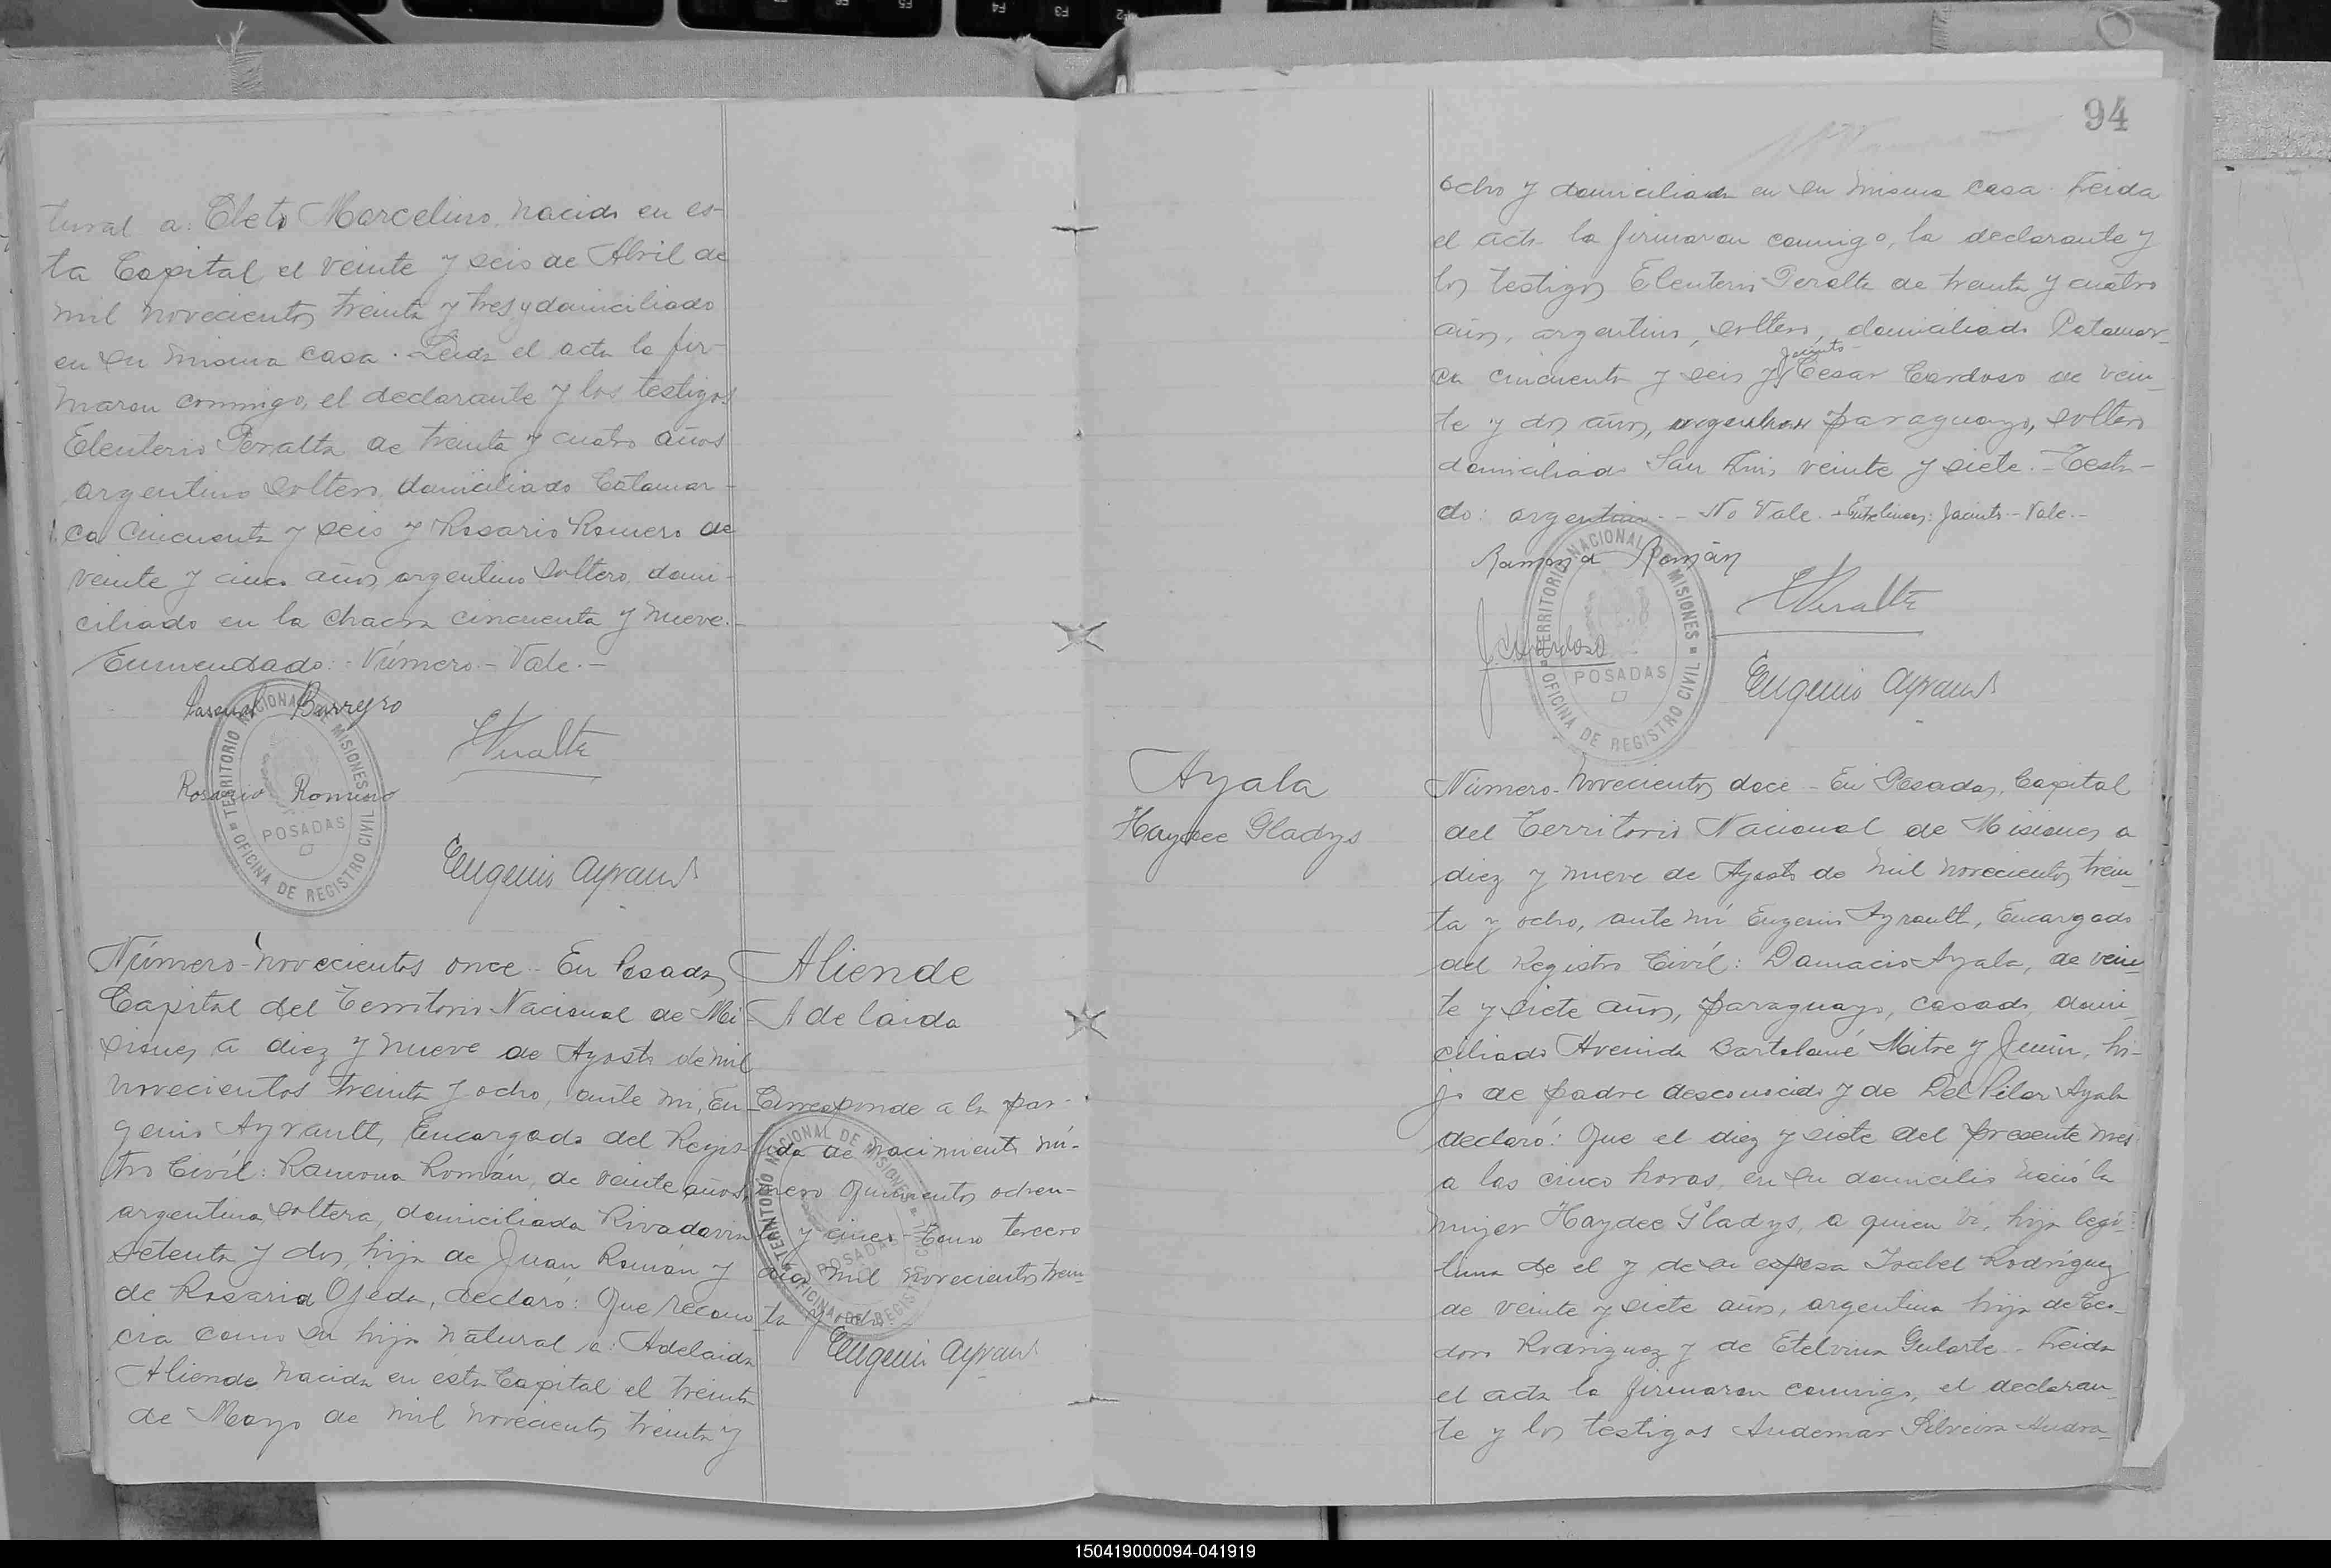 tural a: Cleto Marcelino nacido en es-
ta Capital el veinte y seis de Abril de
mil novecientos treinta y tres y domiciliado
en su misma casa. Leida el acta la fir-
maron conmigo, el declarante y los testigos
Eleuterio Perralta de treinta y cuatro años
argentino soltero, domiciliado Catamar-
ca cincuenta y seis y Rosario Romero de
veinte y cinco años argentino soltero, domi-
ciliado en la chacra cincuenta y nueve.-
Enmendado: Número.- Vale.-
Pascual Barreyro
EPeralta
Rosario Romero
TERRITORIO NACIONAL DE MISIONES
POSADAS
OFICINA DE REGISTRO CIVIL
Eugenio Ayrault
Número novecientos once - En Posadas
Capital del Territorio Nacional de Mi-
siones, a diez y nueve de Agosto de mil
novecientos treinta y ocho, ante mi, Eu-
genio Ayrault, Encargado del Regis-
tro Civil: Ramona Román, de veinte años,
argentina, soltera, domiciliada Rivadavia
setenta y dos, hija de Juan Román y
de Rosaria Ojeda, declaró: Que recono-
cia como su hija natural a: Adelaida
Aliende nacida en esta Capital el treinta
de Mayo de mil novecientos treinta y
Aliende
Adelaida
Corresponde a la par-
tida de nacimiento nú-
mero quinientos ochen-
ta y cinco - Tomo tercero
año mil novecientos trein-
ta y ocho.
TERRITORIO NACIONAL DE MISIONES
POSADAS
OFICINA DE REGISTRO CIVIL
Eugenio Ayrault
94
ocho y domiciliada en su misma casa. Leida
el acta la firmaron conmigo, la declarante y
los testigos Eleuterio Peralta de treinta y cuatro
años, argentino, soltero, domiciliado Catamar-
Jacinto
ca cincuenta y seis y Cesar Cardoso de vein-
te y dos años, argentino paraguayo, soltero
domiciliado San Luis veinte y siete.- Testa-
do: argentino.- No Vale.- Entrelineas: Jacinto.- Vale.-
Ramona Román
EPeralta
J. C. Cardoso
TERRITORIO NACIONAL DE MISIONES
POSADAS
OFICINA DE REGISTRO CIVIL
Eugenio Ayrault
Ayala
Haydee Gladys
Número novecientos doce - En Posadas, Capital
del Territorio Nacional de Misiones a
diez y nueve de Agosto de mil novecientos trein-
ta y ocho, ante mí Eugenio Ayrault, Encargado
del Registro Civil: Damacio Ayala, de vein-
te y siete años, paraguayo, casado, domi-
ciliado Avenida Bartolomé Mitre y Junin, hi-
jo de padre desconocido y de Del Pilar Ayala
declaró: Que el diez y siete del presente mes
a las cinco horas, en su domicilio nació la
mujer Haydee Gladys, a quien vi, hija legí-
tima de el y de su esposa Isabel Rodriguez
de veinte y siete años, argentina hija de Teo-
doro Rodriguez y de Etelvina Gularte - Leida
el acta la firmaron conmigo, el declaran-
te y los testigos Audemar Silveira Andra-
150419000094-041919